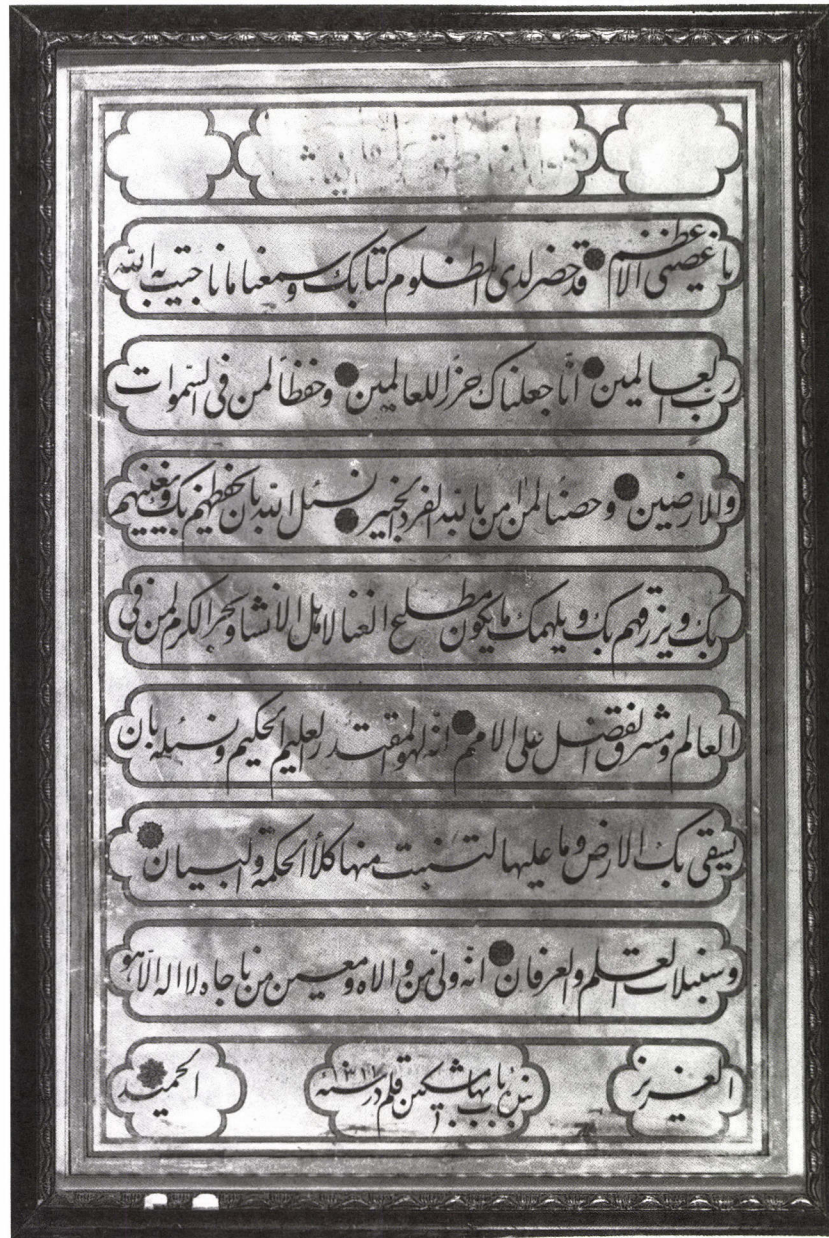 یا غصنی الاعظم قد حضر لدی المظلوم کتابک و سمعنا ما ناجیت به الله
رب العالمین انّا جعلناک حرزاً للعالمین و حفظاً لمن فی السّموات
والارضین و حصناً لمن امن بالله الفرد الخبیر نسئل الله بان یحفظهم بک و یغنیهم
بک و یرزقهم بک و یلهمک ما یکون مطلع الغنا لاهل الانشا و بحر الکرم لمن فی
العالم و مشرق الفضل علی الامم انّه لهو المقتدر العلیم الحکیم و نسئله بان
یسقی بک الارض و ما علیها لتنبت منها کلأ الحکمة و البیان
و سنبلات العلم و العرفان انّه ولیّ من والاه و معین من ناجاه لا اله الّا هو
العزیز
باب بها مشکین قلم در سنه ۱۳۱۱
الحمید